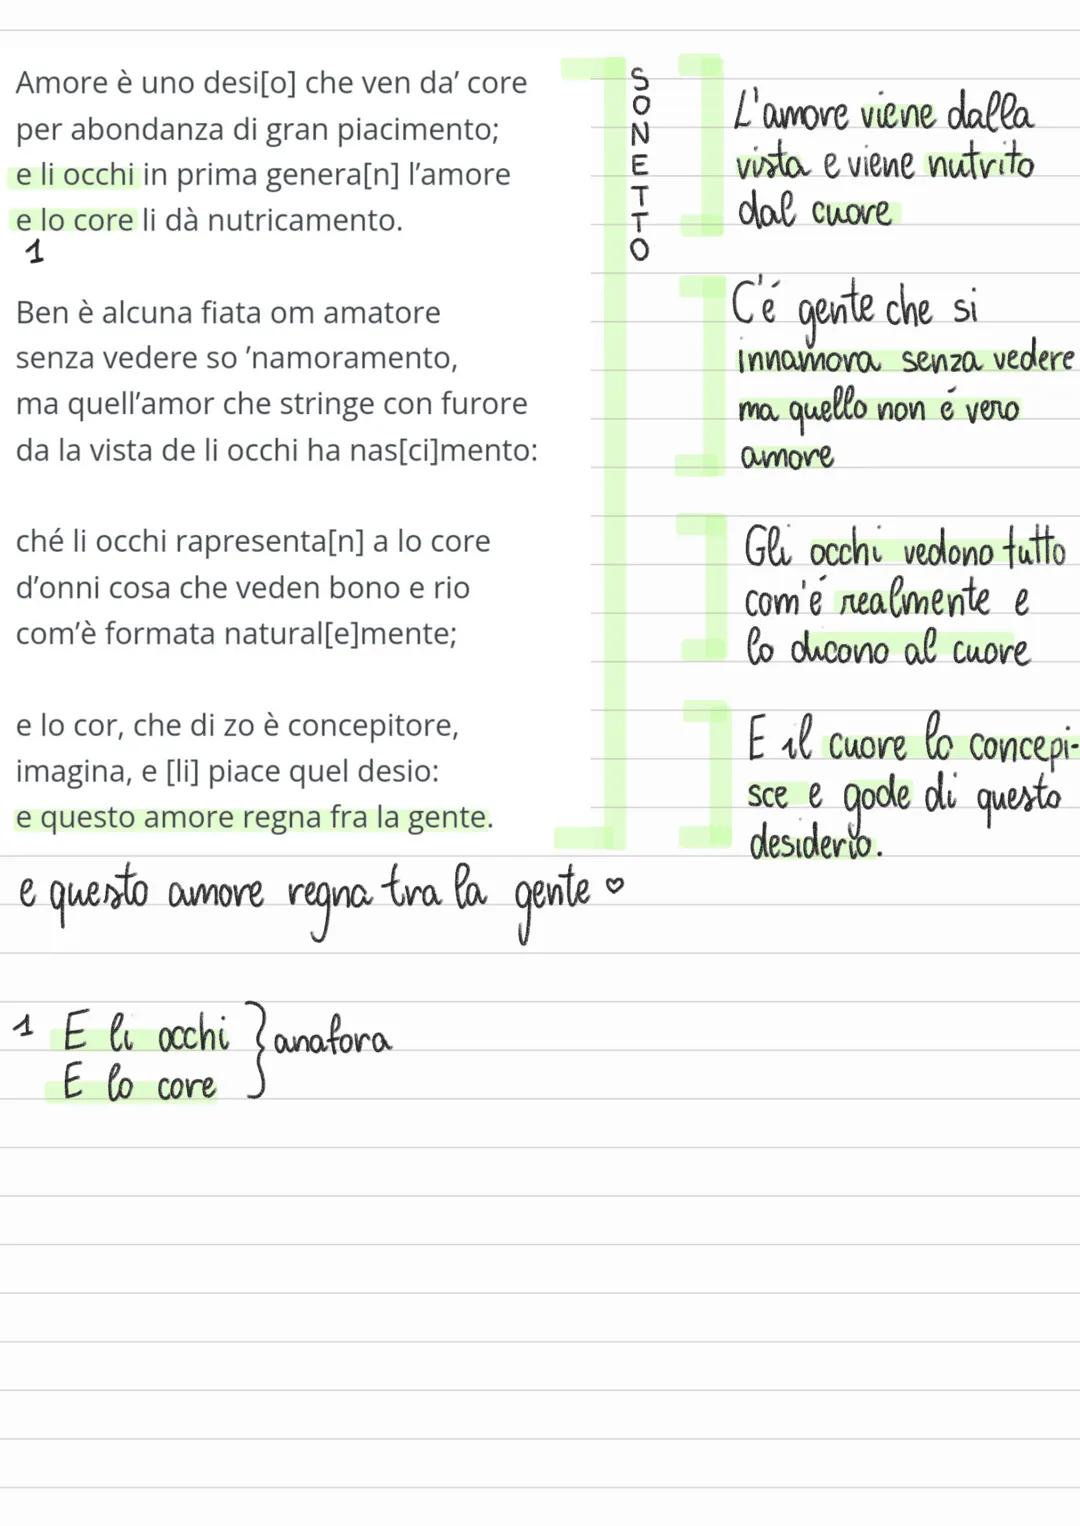 Amore è uno desi[o] che ven da’ core
per abondanza di gran piacimento;
e li occhi in prima genera[n] l’amore
e lo core li dà nutricamento.
1
Ben è alcuna fiata om amatore
senza vedere so ’namoramento,
ma quell’amor che stringe con furore
da la vista de li occhi ha nas[ci]mento:
ché li occhi rapresenta[n] a lo core
d’onni cosa che veden bono e rio
com’è formata natural[e]mente;
e lo cor, che di zo è concepitore,
imagina, e [li] piace quel desio:
e questo amore regna fra la gente.
SONETTO
L'amore viene dalla
vista e viene nutrito
dal cuore
C'é gente che si
innamora senza vedere
ma quello non é vero
amore
Gli occhi vedono tutto
com'é realmente e
lo dicono al cuore
E il cuore lo concepi-
sce e gode di questo
desiderio.
e questo amore regna tra la gente ♡
1 E li occhi } anafora
E lo core